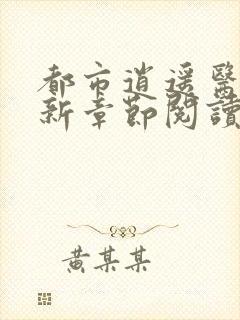 都市逍遥醫
新章節閱讀
黄某某